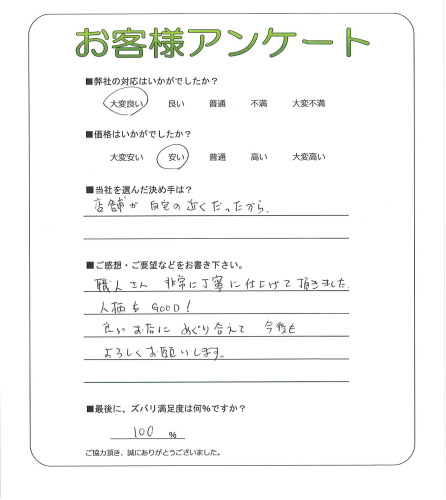 お客様アンケート
■弊社の対応はいかがでしたか?
大変良い 良い 普通 不満 大変不満
■価格はいかがでしたか?
大変安い 安い 普通 高い 大変高い
■当社を選んだ決め手は?
店舗が自宅の近くだったから。
■ご感想・ご要望などをお書き下さい。
職人さん 非常に丁寧に仕上げて頂きました。
人柄もGOOD!
良いお店にめぐり合えて 今後も
よろしくお願いします。
■最後に、ズバリ満足度は何%ですか?
100 %
ご協力頂き、誠にありがとうございました。